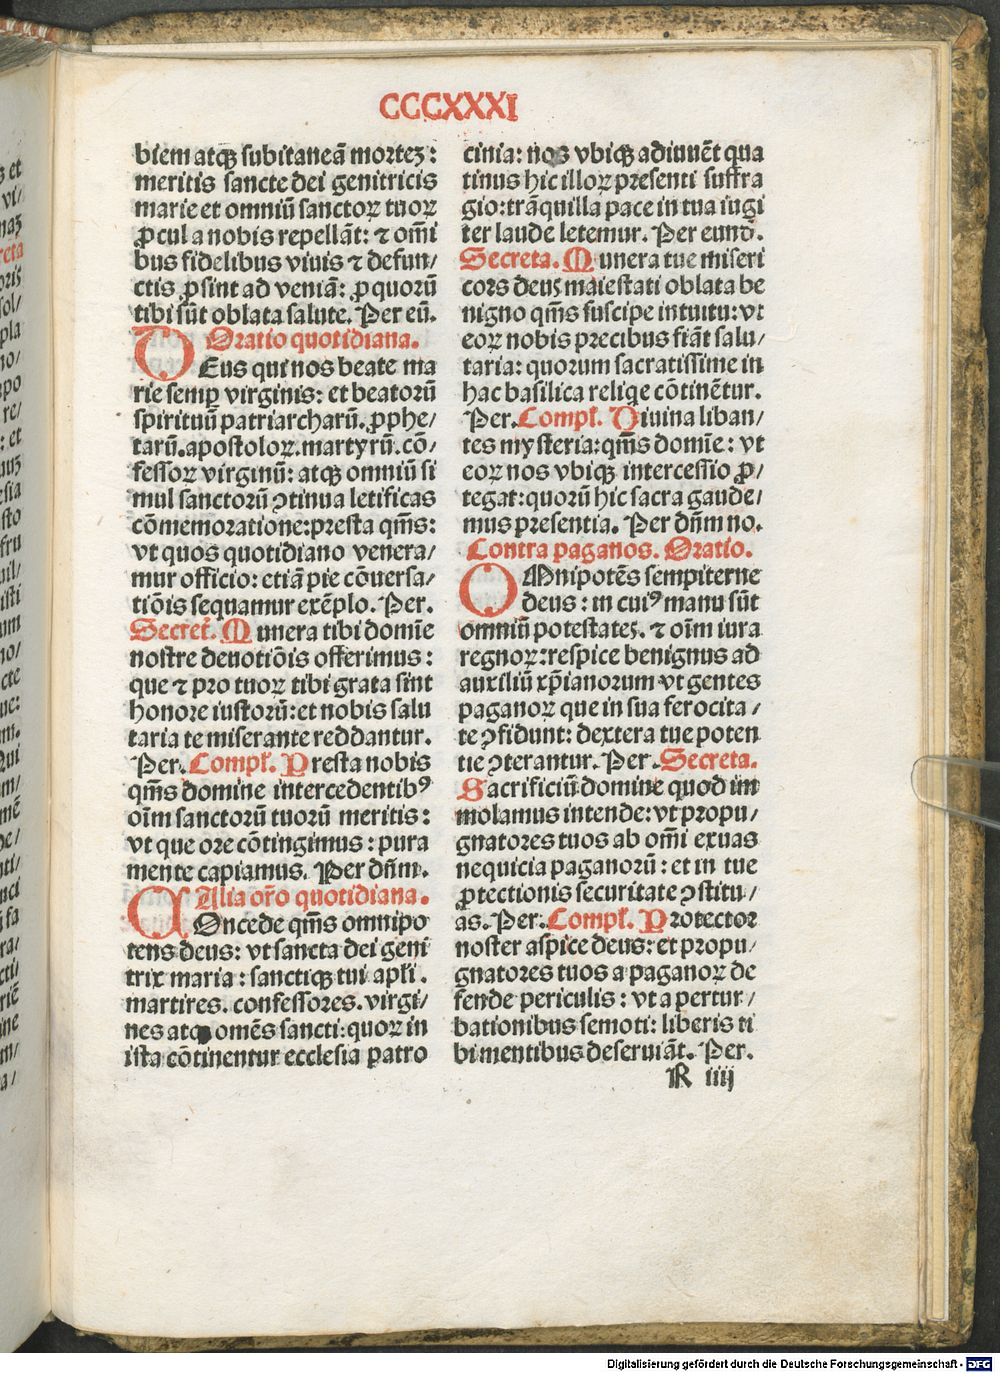 CCCXXXI
biem atqꝫ subitaneā morteꝫ:
meritis sancte dei genitricis
marie et omniū sanctoꝝ tuoꝝ
ꝓcul a nobis repellāt: ⁊ om̄i
bus fidelibus viuis ⁊ defun/
ctis ꝓsint ad veniā: ꝓ quorū
tibi sūt oblata salute. Per eū.
Oratio quotidiana.
DEus qui nos beate ma
rie semꝑ virginis: et beatorū
spirituū patriarcharū. ꝓphe/
tarū. apostoloꝝ. martyrū. cō/
fessoꝝ virginū: atqꝫ omniū si
mul sanctorū ꝯtinua letificas
cōmemoratione: presta qm̄s:
vt quos quotidiano venera/
mur officio: etiā pie cōuersa/
tiōis sequamur exēplo. Per.
Secret̄. Munera tibi domīe
nostre deuotiōis offerimus:
que ⁊ pro tuoꝝ tibi grata sint
honore iustorū: et nobis salu
taria te miserante reddantur.
Per. Compl̄. Presta nobis
qm̄s domine intercedentibꝰ
oīm sanctorū tuorū meritis:
vt que ore cōtingimus: pura
mente capiamus. Per dn̄m.
Alia or̄o quotidiana.
COncede qm̄s omnipo
tens deus: vt sancta dei geni
trix maria: sanctiqꝫ tui apl̄i.
martires. confessores. virgi/
nes atqꝫ omēs sancti: quoꝝ in
ista cōtinentur ecclesia patro
cinia: nos vbiqꝫ adiuuēt qua
tinus hic illoꝝ presenti suffra
gio: trāquilla pace in tua iugi
ter laude letemur. Per eund̄.
Secreta. Munera tue miseri
cors deus maiestati oblata be
nigno qm̄s suscipe intuitu: vt
eoꝝ nobis precibus fiāt salu/
taria: quorum sacratissime in
hac basilica reliqe cōtinētur.
Per. Compl̄. Diuina liban/
tes mysteria: qm̄s domīe: vt
eoꝝ nos vbiqꝫ intercessio ꝓ/
tegat: quorū hic sacra gaude/
mus presentia. Per dn̄m no.
Contra paganos. Oratio.
OMnipotēs sempiterne
deus: in cuiꝰ manu sūt
omniū potestates. ⁊ oīm iura
regnoꝝ: respice benignus ad
auxiliū xp̄ianorum vt gentes
paganoꝝ que in sua ferocita/
te ꝯfidunt: dextera tue poten
tie ꝯterantur. Per. Secreta.
Sacrificiū domine quod im
molamus intende: vt propu/
gnatores tuos ab om̄i exuas
nequicia paganorū: et in tue
ꝓtectionis securitate ꝯstitu/
as. Per. Compl̄. Protector
noster aspice deus: et propu/
gnatores tuos a paganoꝝ de
fende periculis: vt a pertur/
bationibus semoti: liberis ti
bi mentibus deseruiāt. Per.
R iiij
Digitalisierung gefördert durch die Deutsche Forschungsgemeinschaft - DFG